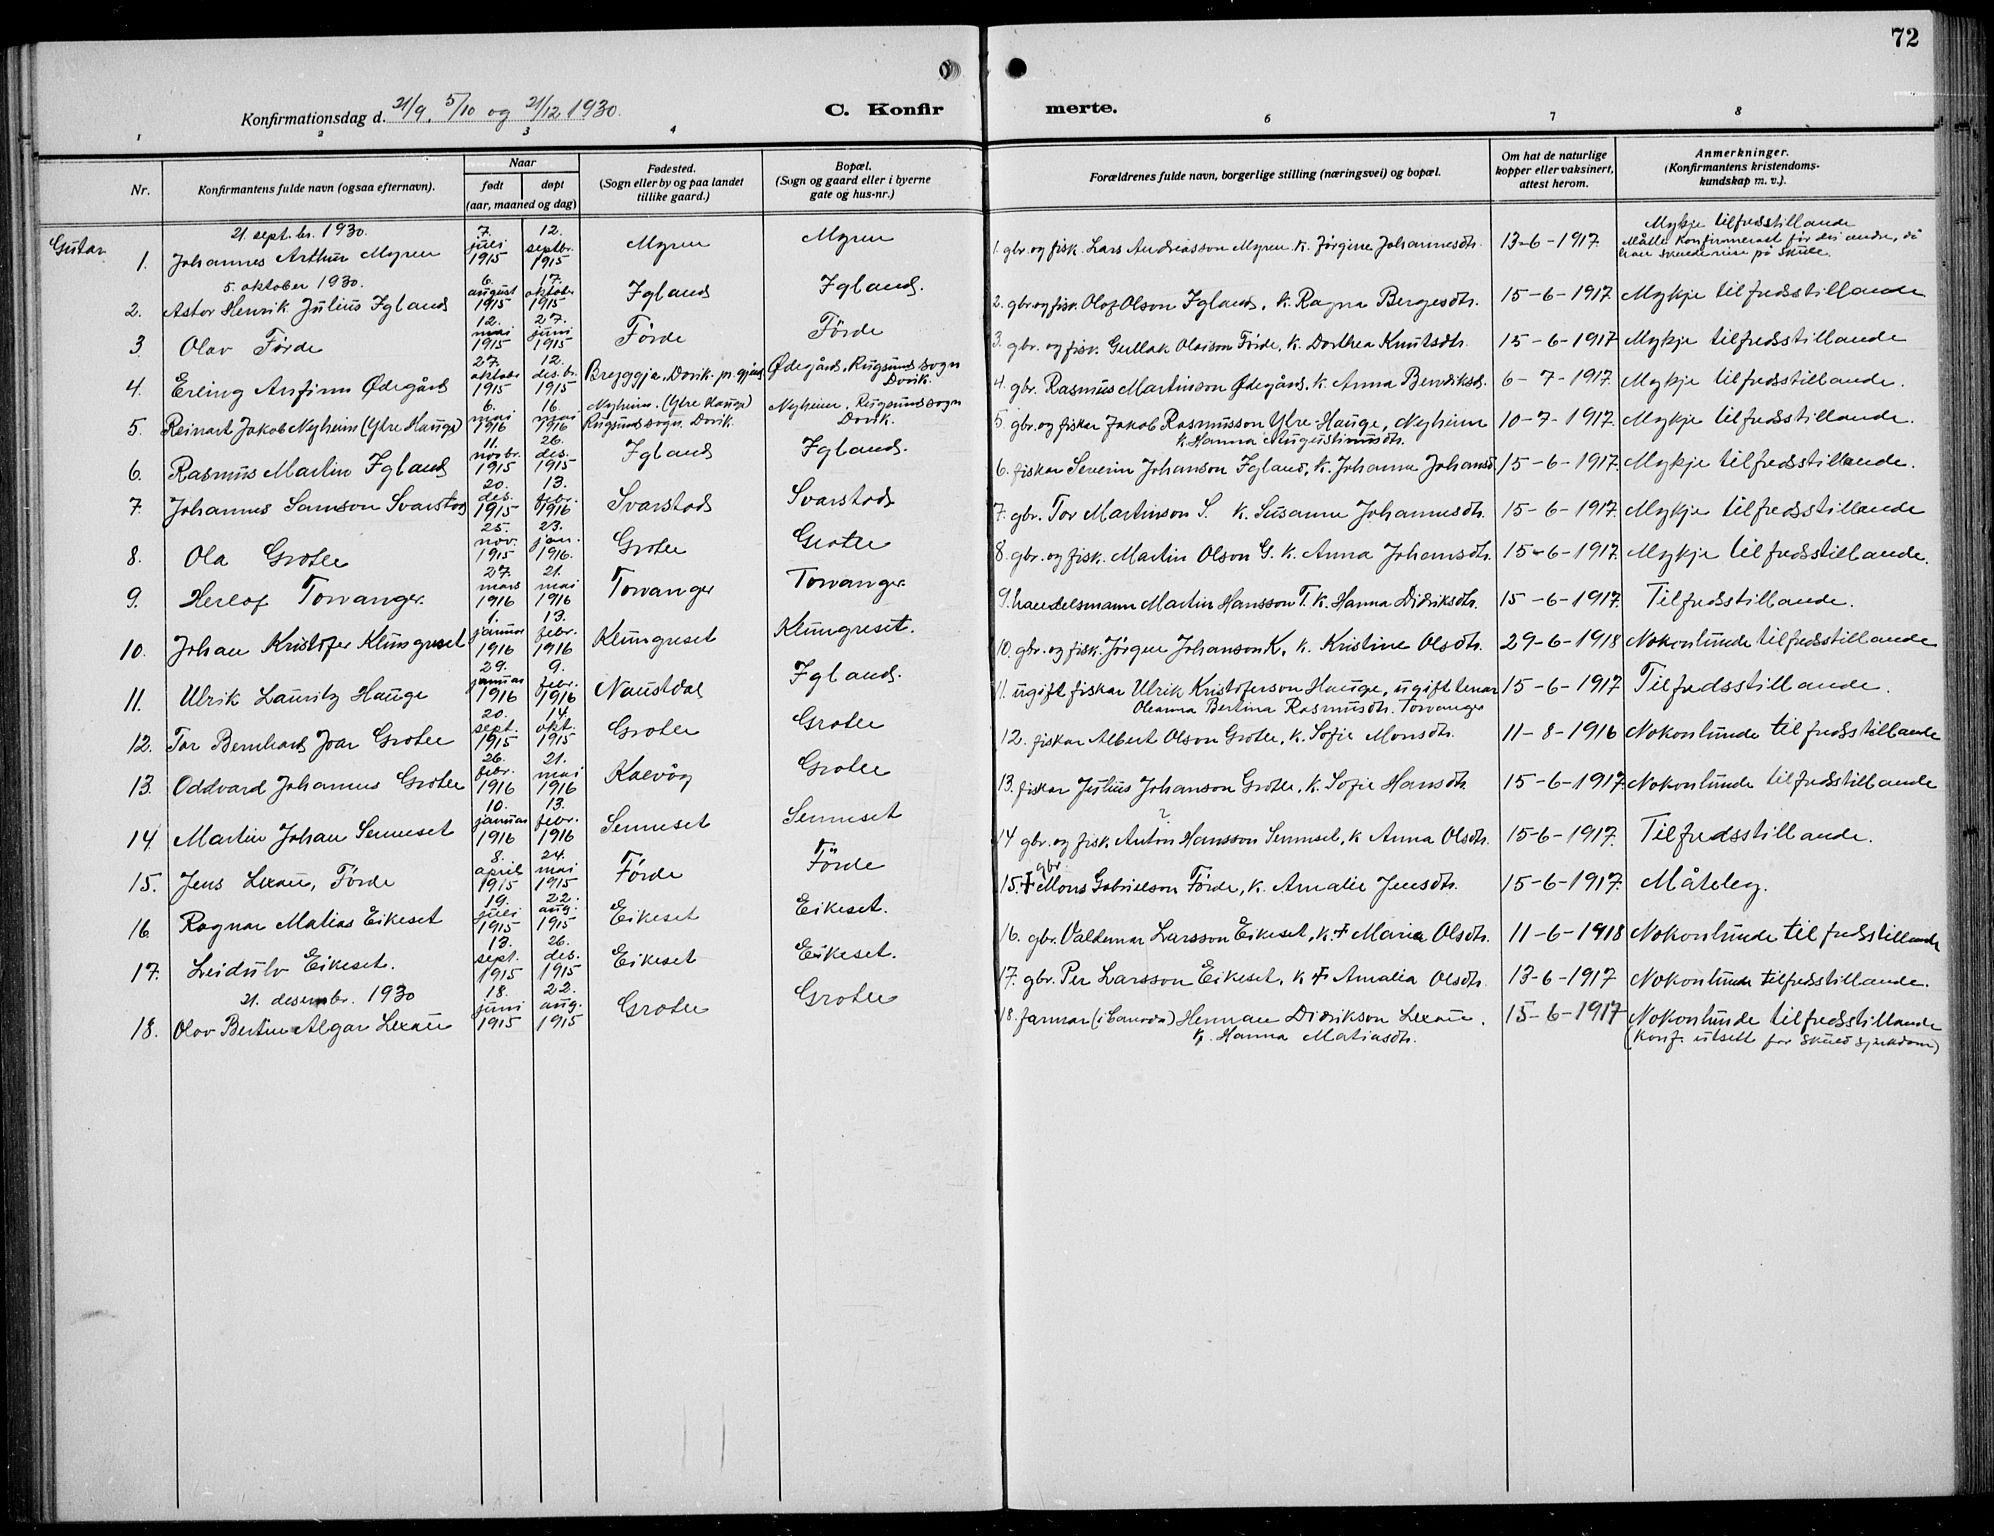 72
Konfirmationsdag d. 21/9, 5/10 og 21/12 1930.
C. Konfirmerte.
1 2 3 4 6 7 8
Nr. Konfirmantens fulde navn (ogsaa efternavn). Naar født døpt (aar, maaned og dag) Fødested. (Sogn eller by og paa landet tillike gaard.) Bopæl. (Sogn og gaard eller i byerne gate og hus-nr.) Forældrenes fulde navn, borgerlige stilling (næringsvei) og bopæl. Om hat de naturlige kopper eller vaksinert, attest herom. Anmerkninger. (Konfirmantens kristendoms-kundskap m. v.).
Gutar
21. sept.br. 1930.
1. Johannes Arthur Myren 7. juli 1915 12. septbr. 1915 Myren Myren 1. gbr. og fisk. Lars Andreasson Myren k. Jørgine Johannesdtr. 13-6-1917. Mykje tilfredsstillande Måtte konfirmerast før dei andre, då han skulde reise på skule.
5. oktober 1930.
2. Astor Henrik Julius Igland 6. august 1915 17. oktober 1915 Igland Igland. 2. gbr. og fisk. Olaf Olson Igland, k. Ragna Bergesdtr. 15-6-1917. Mykje tilfredsstillande
3. Olav Förde 12. mai 1915 27. juni 1915 Förde Förde 3. gbr. og fisk. Gullak Olaison Förde, k. Dorthea Knutsdtr. 15-6-1917 Mykje tilfredsstillande
4. Erling Anfinn Ødegård 27. oktober 1915 12. des.br. 1915 Bryggja, Davik pr.gjeld Ødegård, Rugsund sogn Davik. 4. gbr. Rasmus Martinson Ødegård, k. Anna Bendiksd. 6-7-1917. Mykje tilfredsstillande.
5. Reinart Jakob Nyheim (Ytre Hauge) 6. mai 1916 16. mai 1916 Nyheim. (Ytre Hauge) Rugsund sogn. Davik. Nyheim. Rugsund sogn Davik. 5. gbr. og fiskar Jakob Rasmusson Ytre Hauge, Nyheim k. Hanna Augustinusdtr. 10-7-1917. Mykje tilfredsstillande.
6. Rasmus Martin Igland 11. novbr. 1915 26. des. 1915 Igland Igland. 6. fiskar Severin Johanson Igland, k. Johanna Johansd. 15-6-1917. Mykje tilfredsstillande.
7. Johannes Samson Svarstad 20. des. 1915 13. febr. 1916 Svarstad Svarstad 7. gbr. Tor Martinson S. k. Susanne Johannesdtr. 15-6-1917. Mykje tilfredsstillande
8. Ola Grotle 25. nov. 1915 23. jan. 1916. Grotle Grotle 8. gbr. og fisk. Martin Olson G. k. Anna Johansdtr. 15-6-1917. Mykje tilfredsstillande.
9. Herlof Torvanger. 27. mars 1916 21. mai 1916 Torvanger Torvanger. 9. handelsmann Martin Hansson T. k. Hanna Didriksdtr. 15-6-1917. Tilfredsstillande.
10. Johan Kristofer Klungreset 1. januar 1916 13. febr. 1916 Klungreset Klungreset. 10. gbr. og fisk. Jörgen Johanson K, k. Kristine Olsdtr. 29-6-1918 Nokonlunde tilfredsstillande
11. Ulrik Lauritz Hauge 29. januar 1916 9. febr. 1916 Naustdal Igland. 11. ugift fiskar Ulrik Kristoferson Hauge, ugift tenar Oleanna Bertina Rasmusdtr. Torvanger 15-6-1917 Tilfredsstillande.
12. Tor Bernhard Joar Grotle 20. sept. 1915 14. okt. 1915 Grotle Grotle 12. fiskar Albert Olson Grotle, k. Sofie Monsdtr. 11-8-1916 Nokonlunde tilfredsstillande
13. Oddvard Johannes Grotle 26. febr. 1916 21. mai 1916 Kalvåg Grotle 13. fiskar Julius Johanson Grotle, k. Sofie Hansdtr. 15-6-1917. Nokonlunde tilfredsstillande
14. Martin Johan Senneset 10. januar 1916 13. febr. 1916 Senneset Senneset 14 gbr. og fisk. Anton ? Hansson Senneset, k Anna Olsdtr. 15-6-1917. Tilfredsstillande.
15. Jens Lexau, Förde 8. april 1915 24. mai 1915 Förde Förde 15. † gbr. Mons Gabrielson Förde, k. Amalie Jensdtr. 15-6-1917. Måteleg.
16. Ragnar Matias Eikeset 19. juli 1915 22. aug. 1915 Eikeset Eikeset. 16. gbr. Valdemar Larsson Eikeset, k. † Maria Olsdtr. 11-6-1918 Nokonlunde tilfredsstillande
17. Leidulv Eikeset. 13. sept. 1915 26. des. 1915 Eikeset Eikeset. 17. gbr. Per Larsson Eikeset, k † Amalia Olsdtr. 13-6-1917 Nokonlunde tilfredsstillande.
21. desembr. 1930
18. Olav Bertin Algar Lexau 18. juni 1915 22. aug. 1915 Grotle Grotle 18. farmar (i Canada) Herman Didrikson Lexau. k. Hanna Matiasdtr. 15-6-1917 Nokonlunde tilfredsstillande (Konf. utsett for skuld sjukdom)